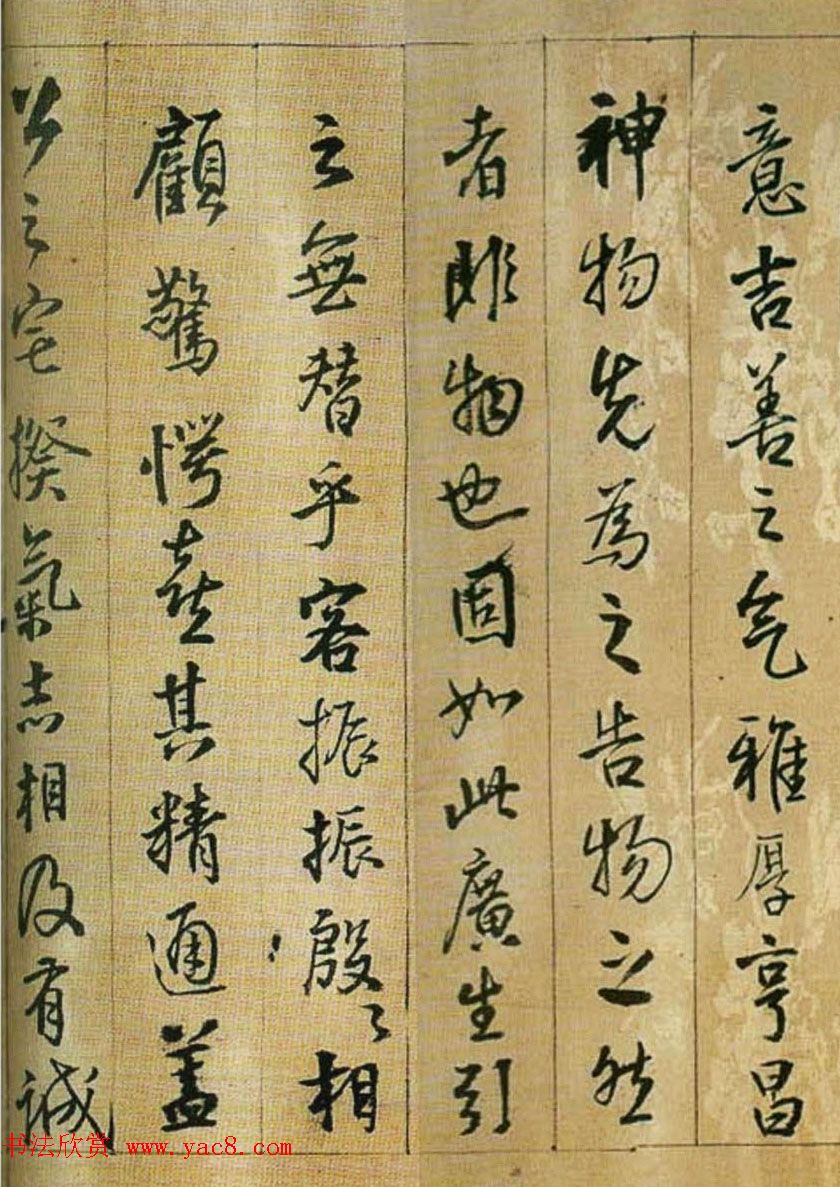 意吉善之气雅厚亨昌
神物先為之告物之然
者雖物也固如此廣生引
之無替乎客振振殷〻相
顧驚愕喜其精通蓋
公之宅揆氣志相及有誠
书法欣赏 www.yac8.com